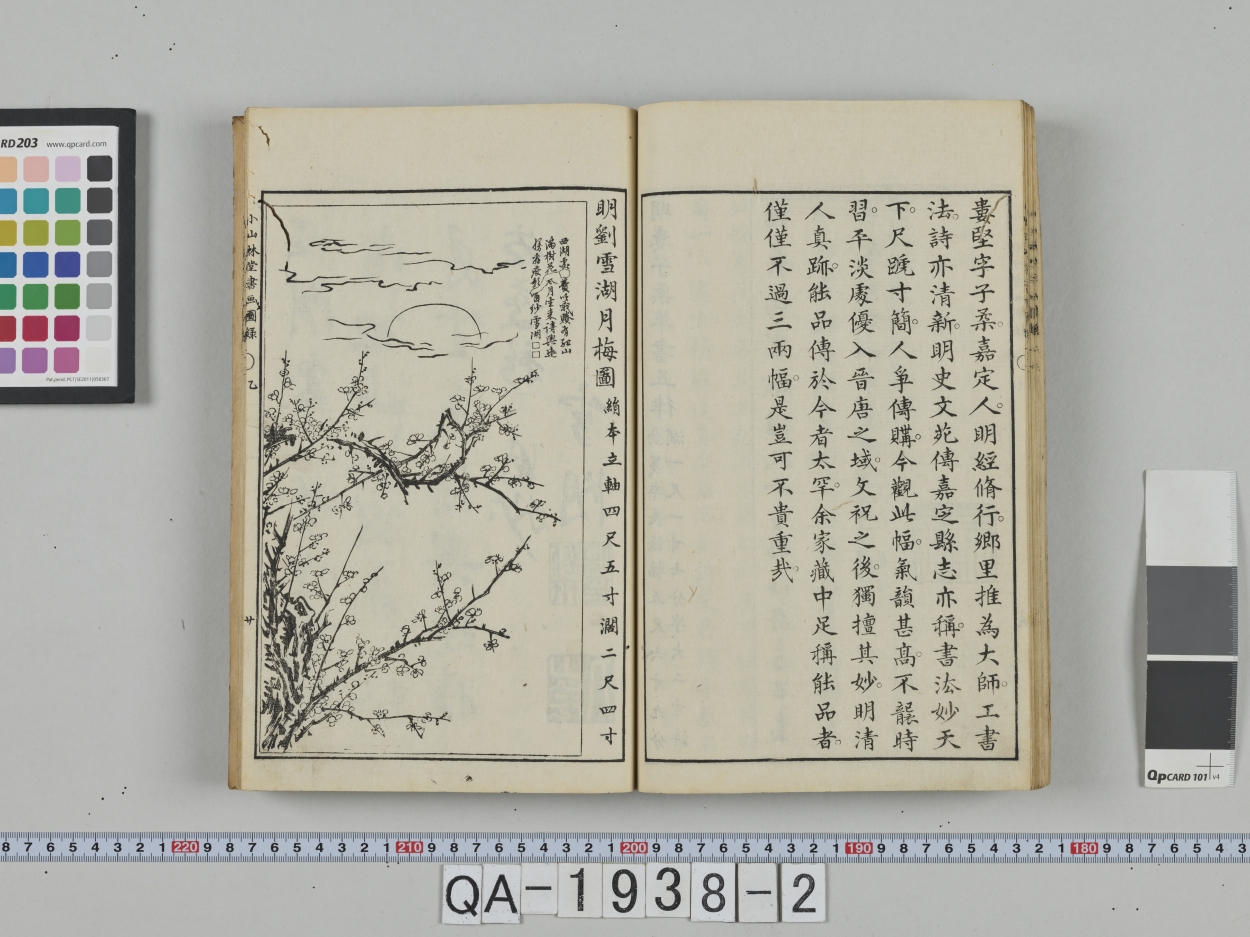 婁堅字子柔。嘉定人。明經脩行。鄉里推為大師。工書
法。詩亦清新。明史文苑傳嘉定縣志亦稱。書法妙天
下。尺蹏寸簡。人爭傳購。今觀此幅。氣韻甚高。不襲時
習。平淡處優入晉唐之域。文祝之後。獨擅其妙。明清
人真跡。能品傳於今者太罕。余家藏中足稱能品者。
僅僅不過三兩幅。是豈可不貴重哉。
明劉雪湖月梅圖 絹本立軸四尺五寸濶二尺四寸
小山林堂書画圖錄
乙
廿
RD203
www.qpcard.com
QPCARD 101 v4
8 7 6 5 4 3 2 1 220 9 8 7 6 5 4 3 2 1 210 9 8 7 6 5 4 3 2 1 200 9 8 7 6 5 4 3 2 1 190 9 8 7 6 5 4 3 2 1 180 9 8 7 6 5 4 3
QA-1938-2